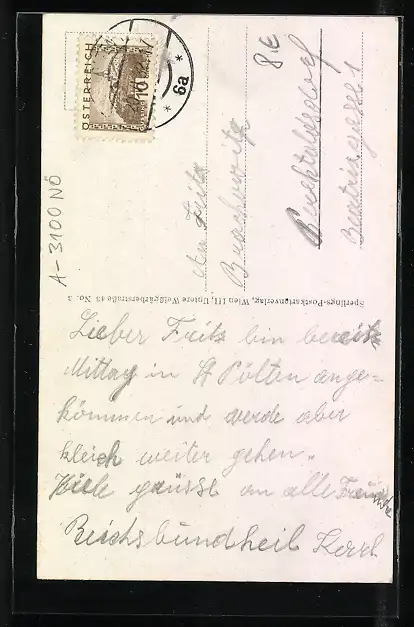 ÖSTERREICH
10
6a
8 E
An Fritz
Buschwitz
Perchtoldsdorf
Beatrixgasse 1
A-3100 NÖ
Sperlings-Postkartenverlag, Wien III, Untere Weißgärberstraße 43 No. 3
Lieber Fritz bin bereits
Mittag in St Pölten ange-
kommen und werde aber
gleich weiter gehen.
Viele grüsse an alle Freunde
Reichsbundheil Kerrl